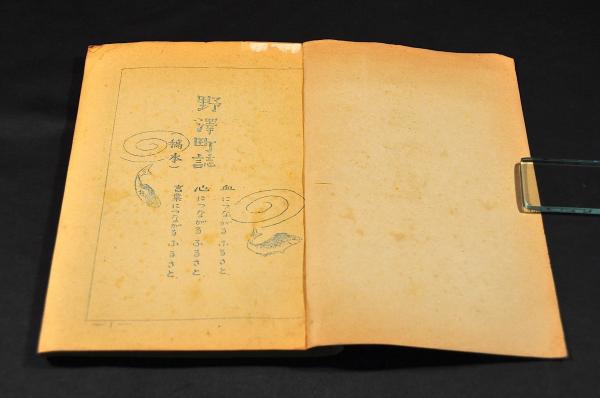 野澤町誌
(稿本)
血につながるふるさと、
心につながるふるさと、
言葉につながるふるさと、